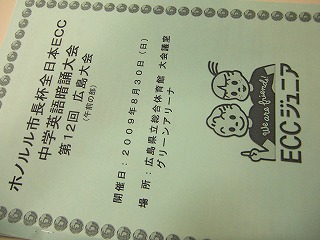 ホノルル市長杯全日本ECC
中学英語暗誦大会
第12回 広島大会
〈午前の部〉
開催日：2009年8月30日（日）
場所：広島県立総合体育館 大会議室
グリーンアリーナ
We are friends!
ECCジュニア